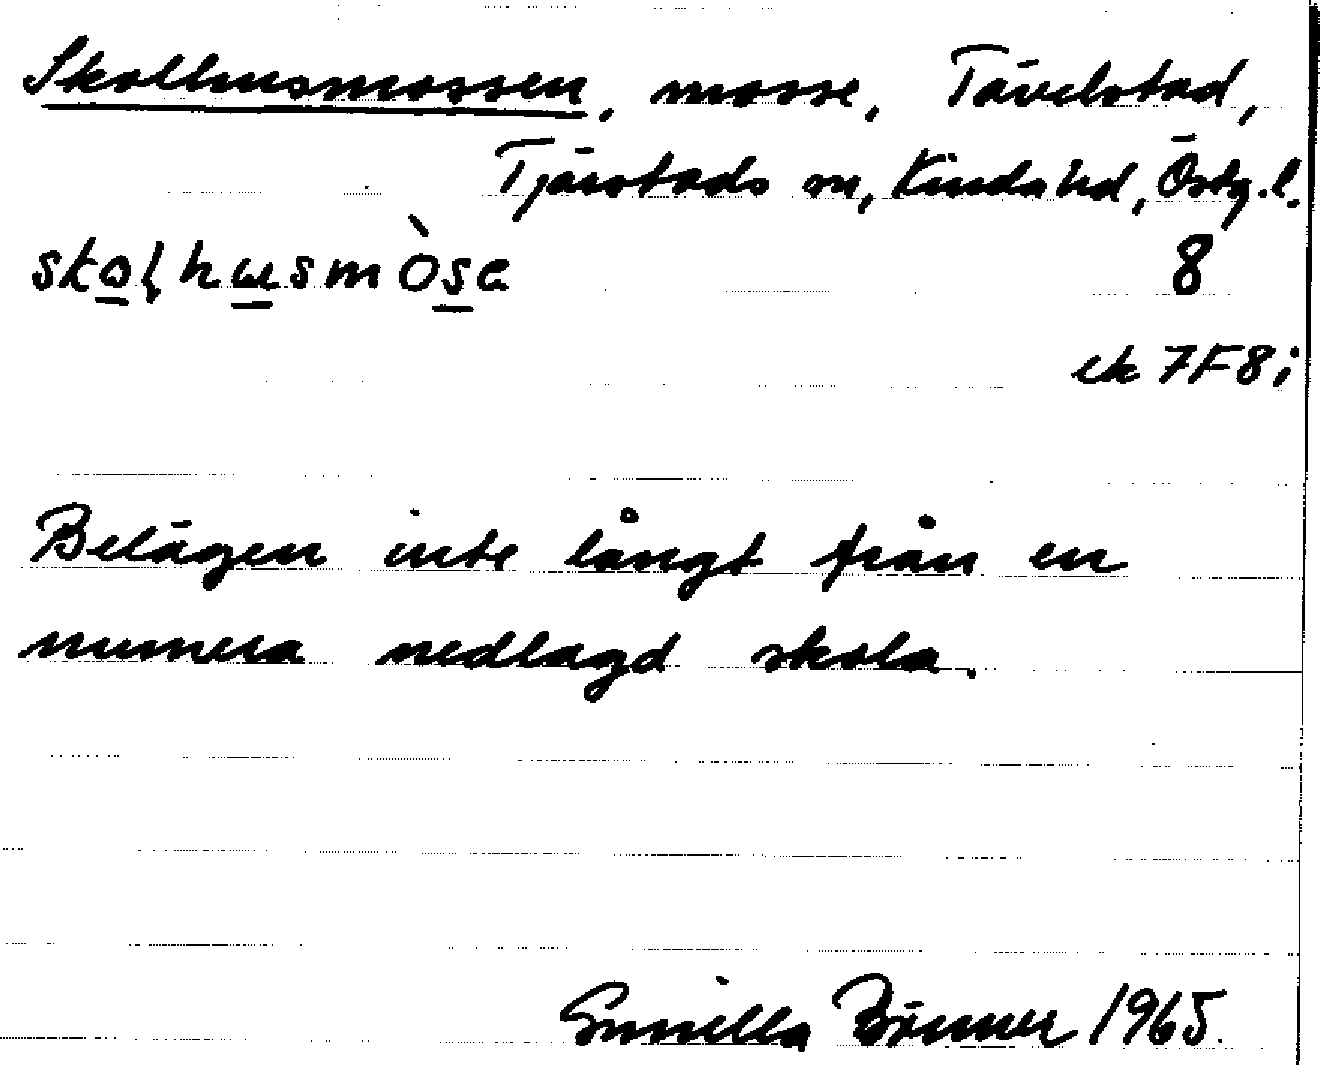 Skolhusmossen, mosse, Tävelstad,
Tjärstads sn, Kinda hd, Östg.l.
skolhusmòse 8
ek 7F8i
Belägen inte långt från en
numera nedlagd skola.
Gunilla 1965.